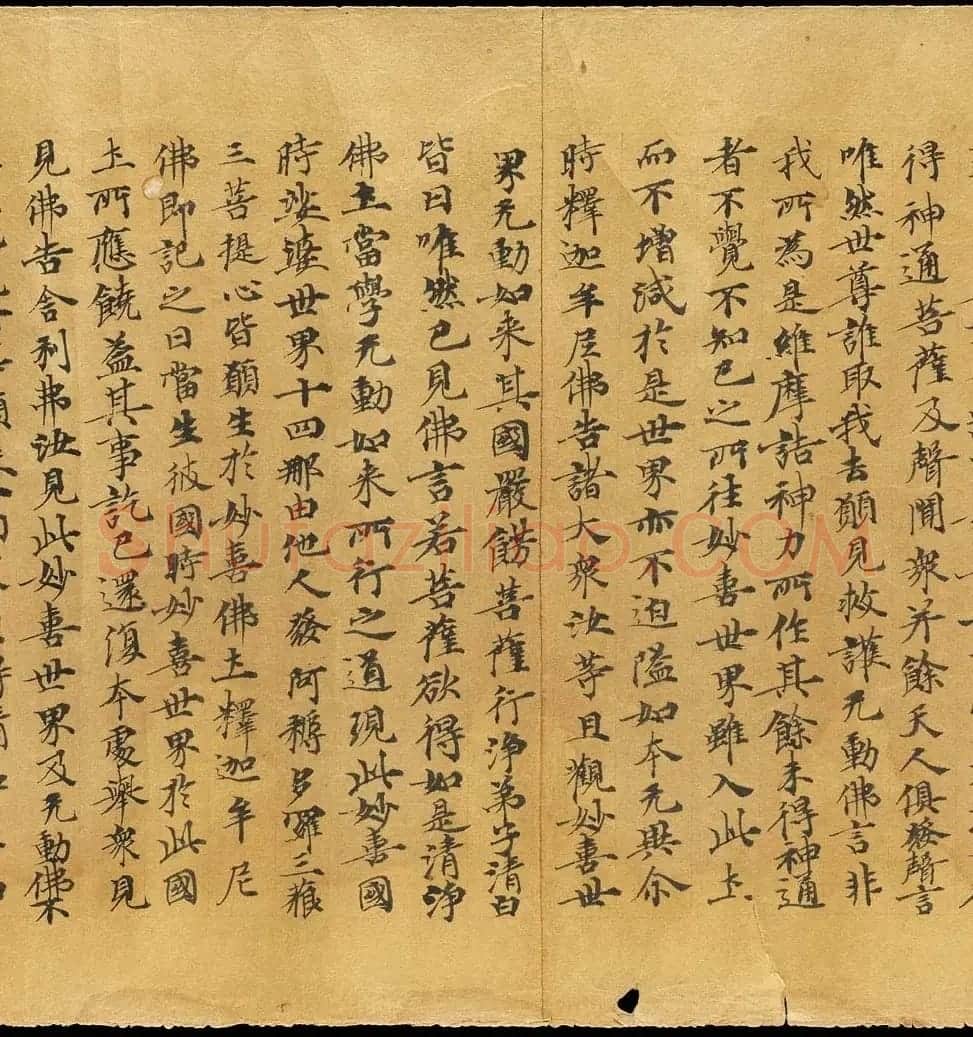 得神通菩薩及聲聞衆并餘天人俱發聲言
唯然世尊誰取我去願見救護无動佛言非
我所為是維摩詰神力所作其餘未得神通
者不覺不知己之所往妙喜世界雖入此土
而不增減於是世界亦不迫隘如本无異尒
時釋迦牟尼佛告諸大衆汝等且觀妙喜世
界无動如来其國嚴餝菩薩行淨弟子清白
皆曰唯然已見佛言若菩薩欲得如是清淨
佛土當學无動如来所行之道現此妙喜國
時娑婆世界十四那由他人發阿耨多羅三藐
三菩提心皆願生於妙喜佛土釋迦牟尼
佛即記之曰當生彼國時妙喜世界於此國
土所應饒益其事訖已還復本處舉衆見
見佛告舍利弗汝見此妙喜世界及无動佛不
Shufaziliao.COM